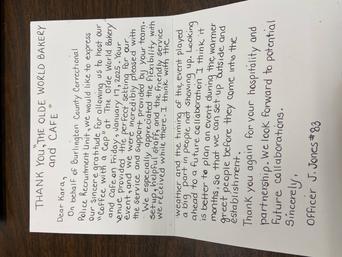 THANK YOU, THE OLDE WORLD BAKERY
and CAFE"
Dear Kara,
On behalf of Burlington County Correctional
Police Recruitment Unit, we would like to express
our sincere gratitude for allowing us to host our
"Coffee with a Cop" at The Olde World Bakery
and Cafe on Friday, 2025. Your
venue provided the perfect setting for our
event, and we were incredibly pleased with
the service and support provided by your team.
We especially appreciated the flexibility with
setup, helpful staff, and the friendly service
we received while there. I think with the
weather and the timing of the event played
a big part of people not showing up. Looking
ahead to a future collaboration I think it
is better to plan an event during the warmer
months, so that we can set up outside and
greet people before they come into the
establishment.
Thank you again for your hospitality and
partnership. We look forward to potential
future collaborations.
Sincerely,
Officer J. Jones #83